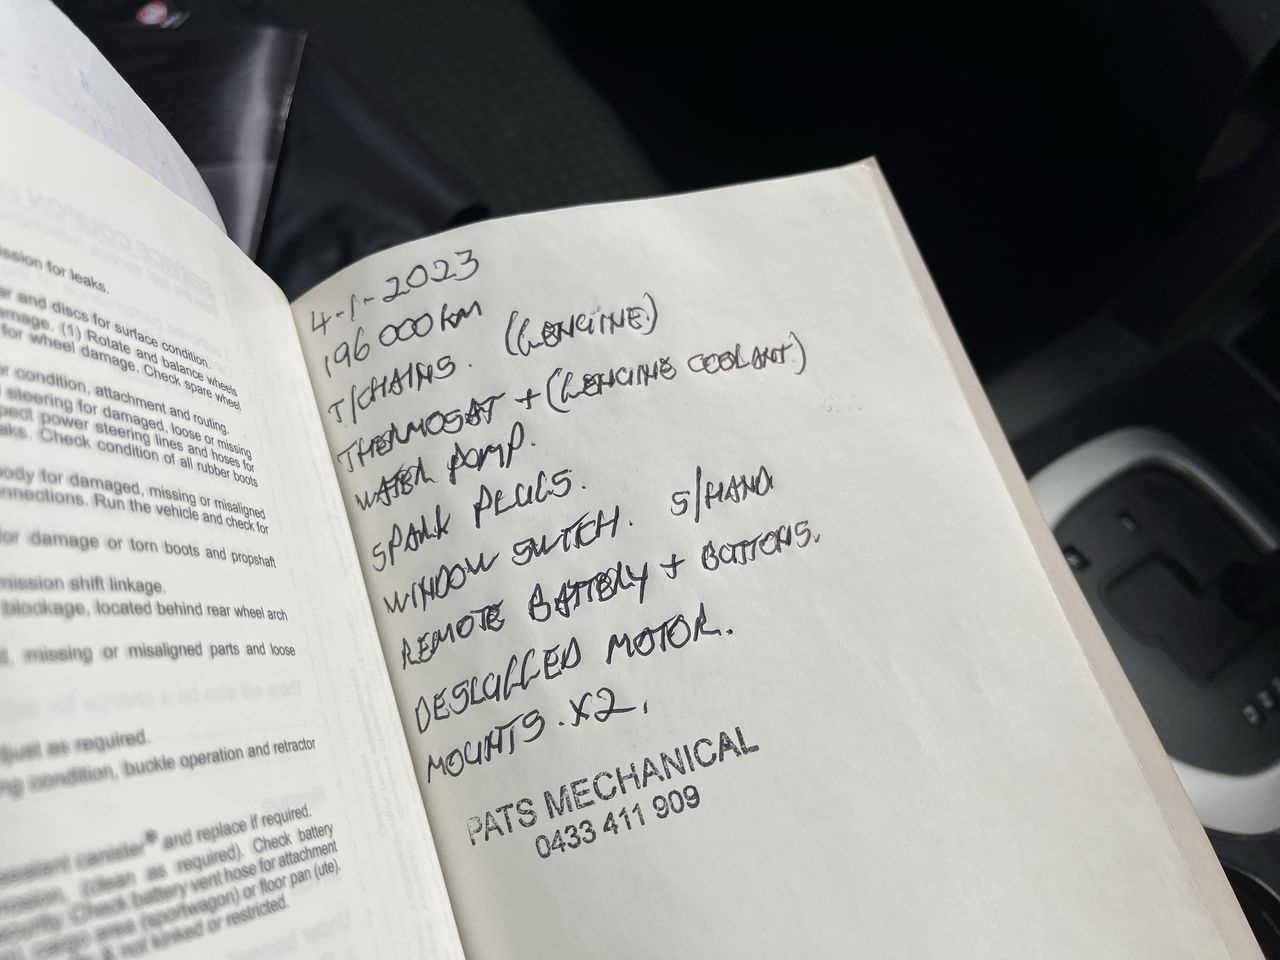 ission for leaks.
ar and discs for surface condition.
amage. (1) Rotate and balance wheels
for wheel damage. Check spare wheel
or condition, attachment and routing.
steering for damaged, loose or missing
pect power steering lines and hoses for
aks. Check condition of all rubber boots
body for damaged, missing or misaligned
nnections. Run the vehicle and check for
for damage or torn boots and propshaft
mission shift linkage.
blockage, located behind rear wheel arch
d, missing or misaligned parts and loose
djust as required.
ng condition, buckle operation and retractor
canister* and replace if required.
(clean as required). Check battery
Check battery vent hose for attachment
cargo area (sportwagon) or floor pan (ute).
& not kinked or restricted.
4-1-2023
196 000km
T/CHAINS. (ENGINE)
THERMOSAT + (ENGINE COOLANT)
WATER PUMP.
SPARK PLUGS.
WINDOW SWITCH. S/HAND
REMOTE BATTERY + BUTTONS.
MOTOR.
MOUNTS. X2.
PATS MECHANICAL
0433 411 909